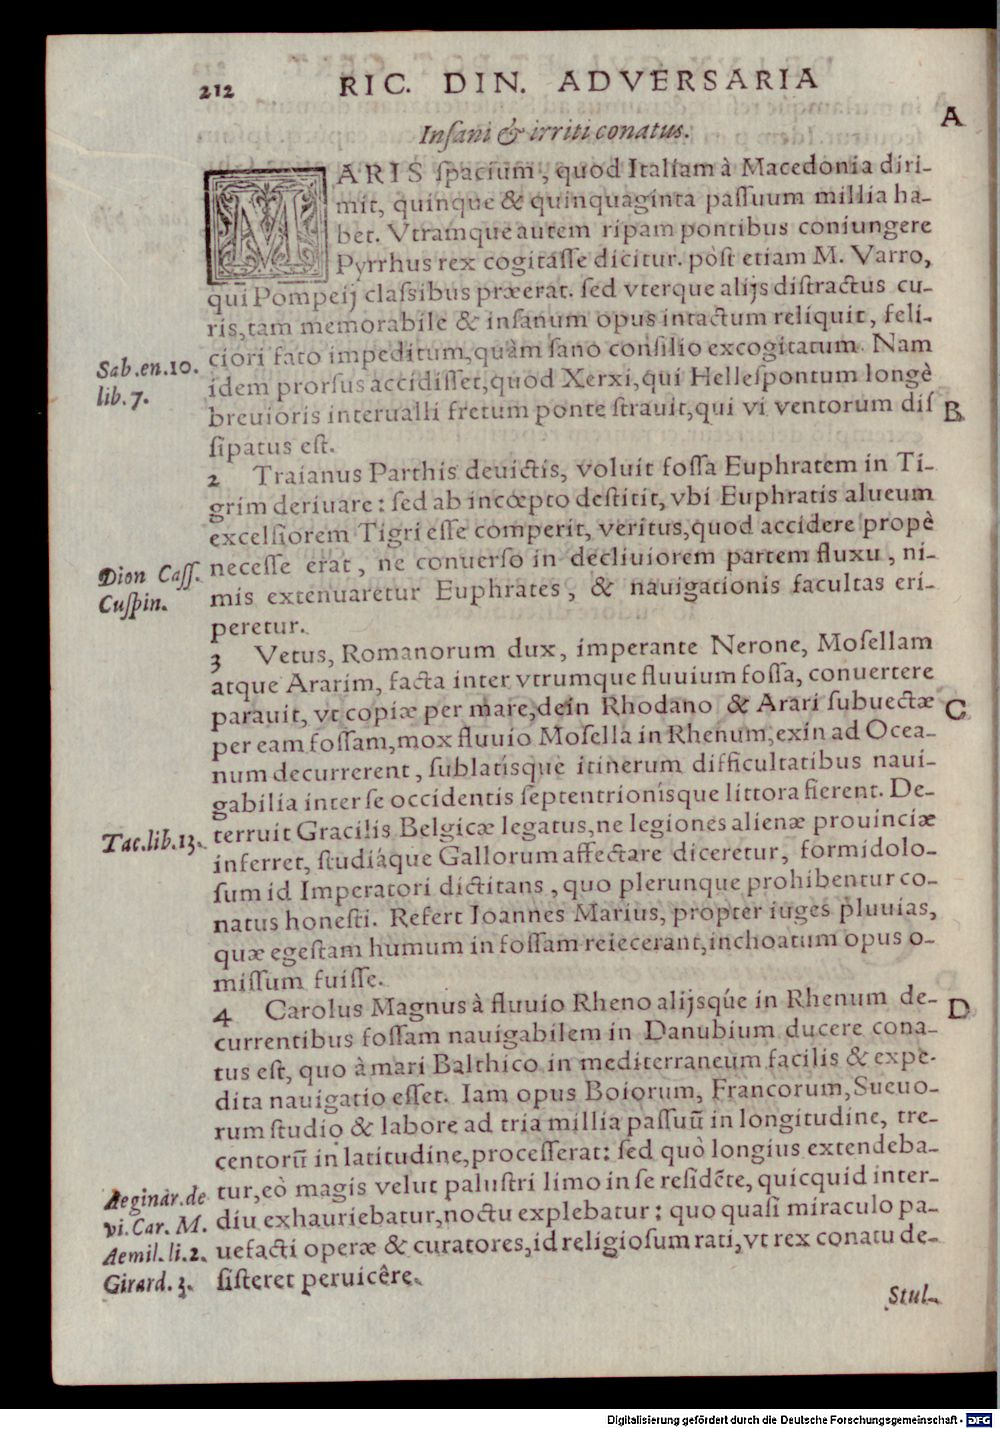 212 RIC. DIN. ADVERSARIA
Insani & irriti conatus.
A
MARIS spacium, quod Italiam à Macedonia diri-
mit, quinque & quinquaginta passuum millia ha-
bet. Vtramque autem ripam pontibus coniungere
Pyrrhus rex cogitasse dicitur. pòst etiam M. Varro,
qui Pompeij classibus præerat. sed vterque alijs distractus cu-
ris, tam memorabile & insanum opus intactum reliquit, feli-
ciori fato impeditum, quàm sano consilio excogitatum. Nam
Sab.en.10.
lib.7.
idem prorsus accidisset, quod Xerxi, qui Hellespontum longè
breuioris interualli fretum ponte strauit, qui vi ventorum dis
B
sipatus est.
2 Traianus Parthis deuictis, voluit fossa Euphratem in Ti-
grim deriuare: sed ab incœpto destitit, vbi Euphratis alueum
excelsiorem Tigri esse comperit, veritus, quod accidere propè
necesse erat, ne conuerso in decliuiorem partem fluxu, ni-
Dion Cass.
Cuspin.
mis extenuaretur Euphrates, & nauigationis facultas eri-
peretur.
3 Vetus, Romanorum dux, imperante Nerone, Mosellam
atque Ararim, facta inter vtrumque fluuium fossa, conuertere
parauit, vt copiæ per mare, dein Rhodano & Arari subuectæ
C
per eam fossam, mox fluuio Mosella in Rhenum, exin ad Ocea-
num decurrerent, sublatisque itinerum difficultatibus naui-
gabilia inter se occidentis septentrionisque littora fierent. De-
terruit Gracilis Belgicæ legatus, ne legiones alienæ prouinciæ
Tac.lib.13.
inferret, studiáque Gallorum affectare diceretur, formidolo-
sum id Imperatori dictitans, quo plerunque prohibentur co-
natus honesti. Refert Ioannes Marius, propter iuges pluuias,
quæ egestam humum in fossam reiecerant, inchoatum opus o-
missum fuisse.
4 Carolus Magnus à fluuio Rheno alijsqúe in Rhenum de-
D
currentibus fossam nauigabilem in Danubium ducere cona-
tus est, quo à mari Balthico in mediterraneum facilis & expe-
dita nauigatio esset. Iam opus Boiorum, Francorum, Sueuo-
rum studio & labore ad tria millia passuũ in longitudine, tre-
centorũ in latitudine, processerat: sed quò longius extendeba-
tur, eò magis velut palustri limo in se residẽte, quicquid inter-
Aeginar.de
vi.Car.M.
Aemil.li.2.
Girard.3.
diu exhauriebatur, noctu explebatur: quo quasi miraculo pa-
uefacti operæ & curatores, id religiosum rati, vt rex conatu de-
sisteret peruicêre.
Stul-
Digitalisierung gefördert durch die Deutsche Forschungsgemeinschaft - DFG